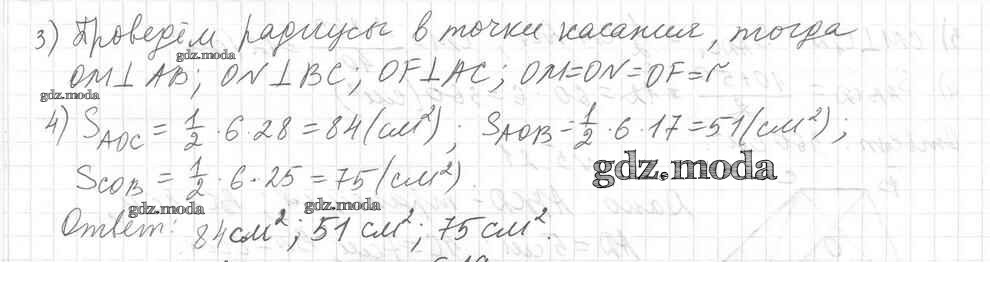 3) Проведём радиусы в точки касания, тогда
gdz.moda
OM⊥AB; ON⊥BC; OF⊥AC; OM=ON=OF=r
gdz.moda
4) S_AOC = 1/2 · 6 · 28 = 84 (см²); S_AOB = 1/2 · 6 · 17 = 51 (см²);
S_COB = 1/2 · 6 · 25 = 75 (см²)
gdz.moda
gdz.moda
gdz.moda
Ответ: 84 см²; 51 см²; 75 см².